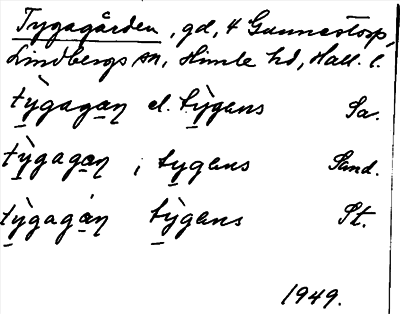 Tygagården, gd, 4 Gunnestorp,
Lindbergs sn, Himle hd, Hall. l.
tỳgagan̥ el. tỳgens Sa.
tỳgagan̥, tygens Sand.
tỳgagán̥ tỳgens St.
1949.